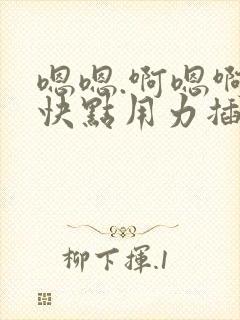 嗯嗯.啊嗯啊
快點用力插
柳下揮.1